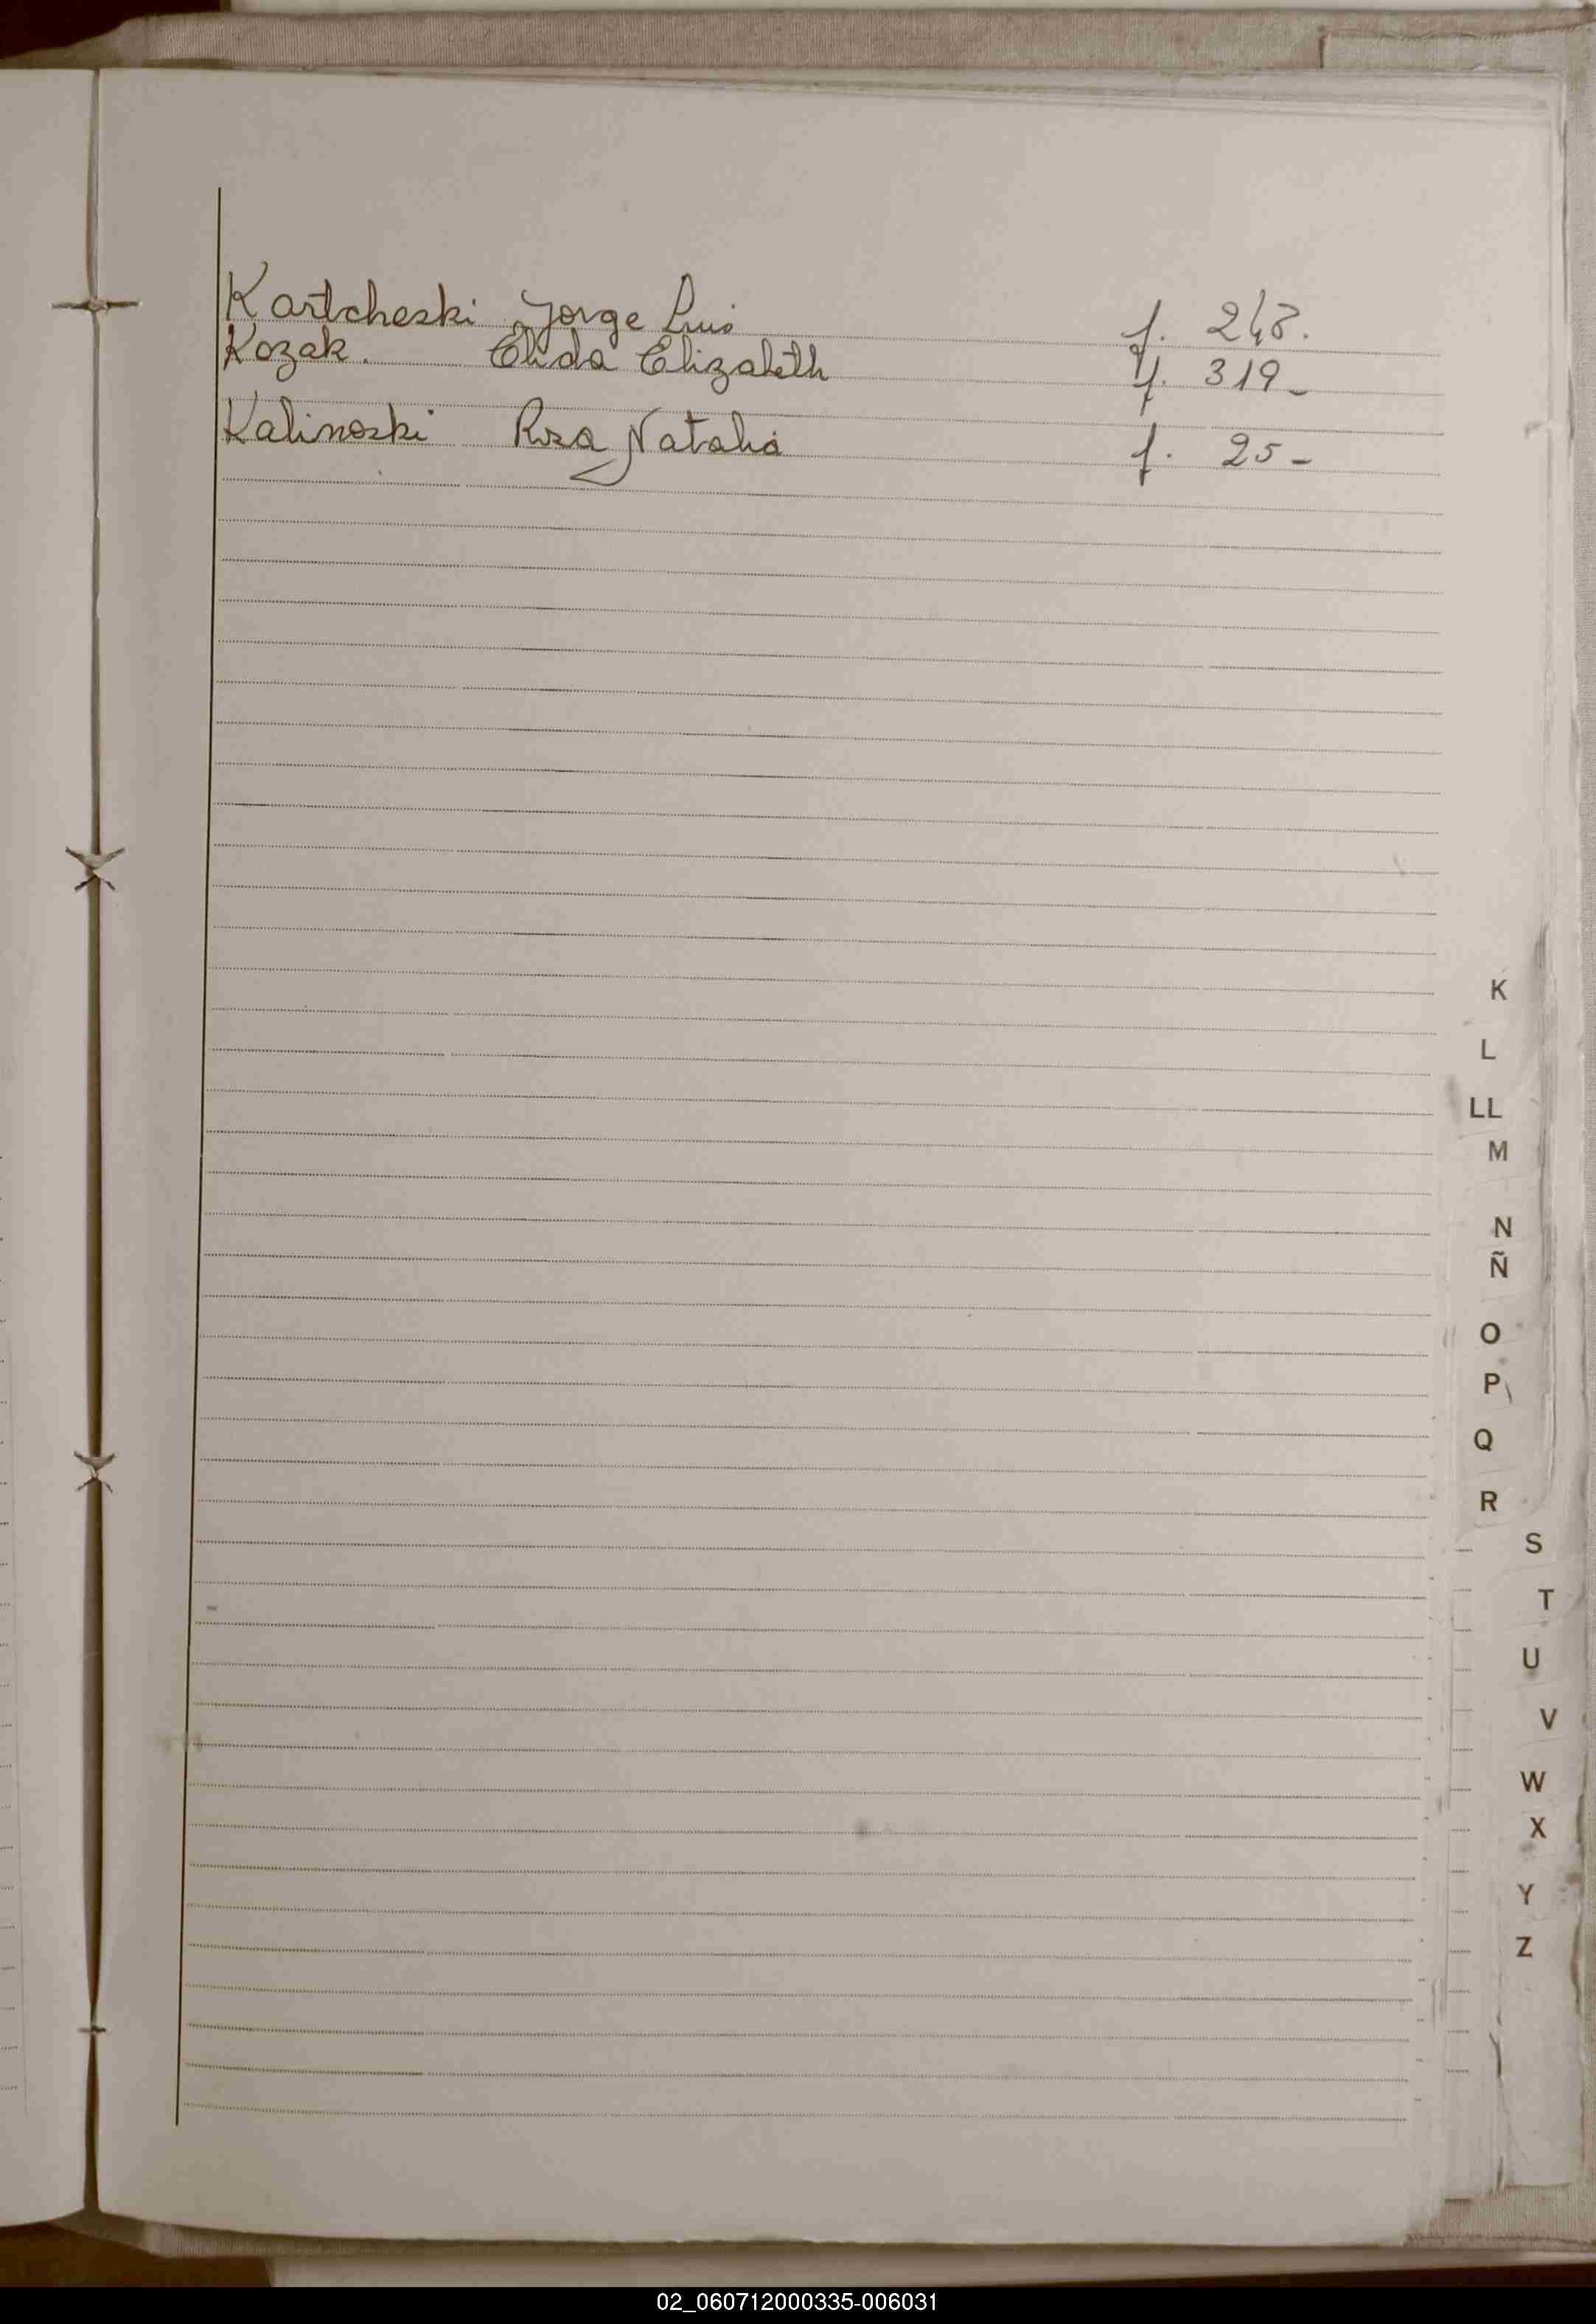 Kartcheski Jorge Luis f. 248.
Kozak. Elida Elizabeth f. 319-
Kalinoski Rosa Natalia f. 25-
K
L
LL
M
N
Ñ
O
P
Q
R
S
T
U
V
W
X
Y
Z
02_060712000335-006031